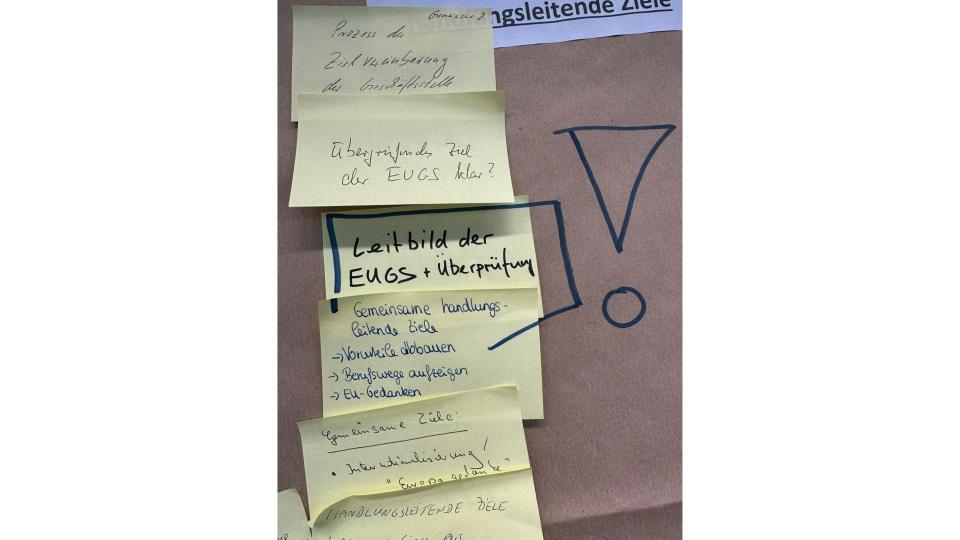 handlungsleitende Ziele
Prozess der
Zielvereinbarung
der Geschäftsstelle
Übergreifendes Ziel
der EUGS klar?
Leitbild der
EUGS + Überprüfung
Gemeinsame handlungs-
leitende Ziele
→ Vorurteile abbauen
→ Berufswege aufzeigen
→ EU-Gedanken
Gemeinsame Ziele:
• Internationalisierung!
"Europagedanke"
HANDLUNGSLEITENDE ZIELE